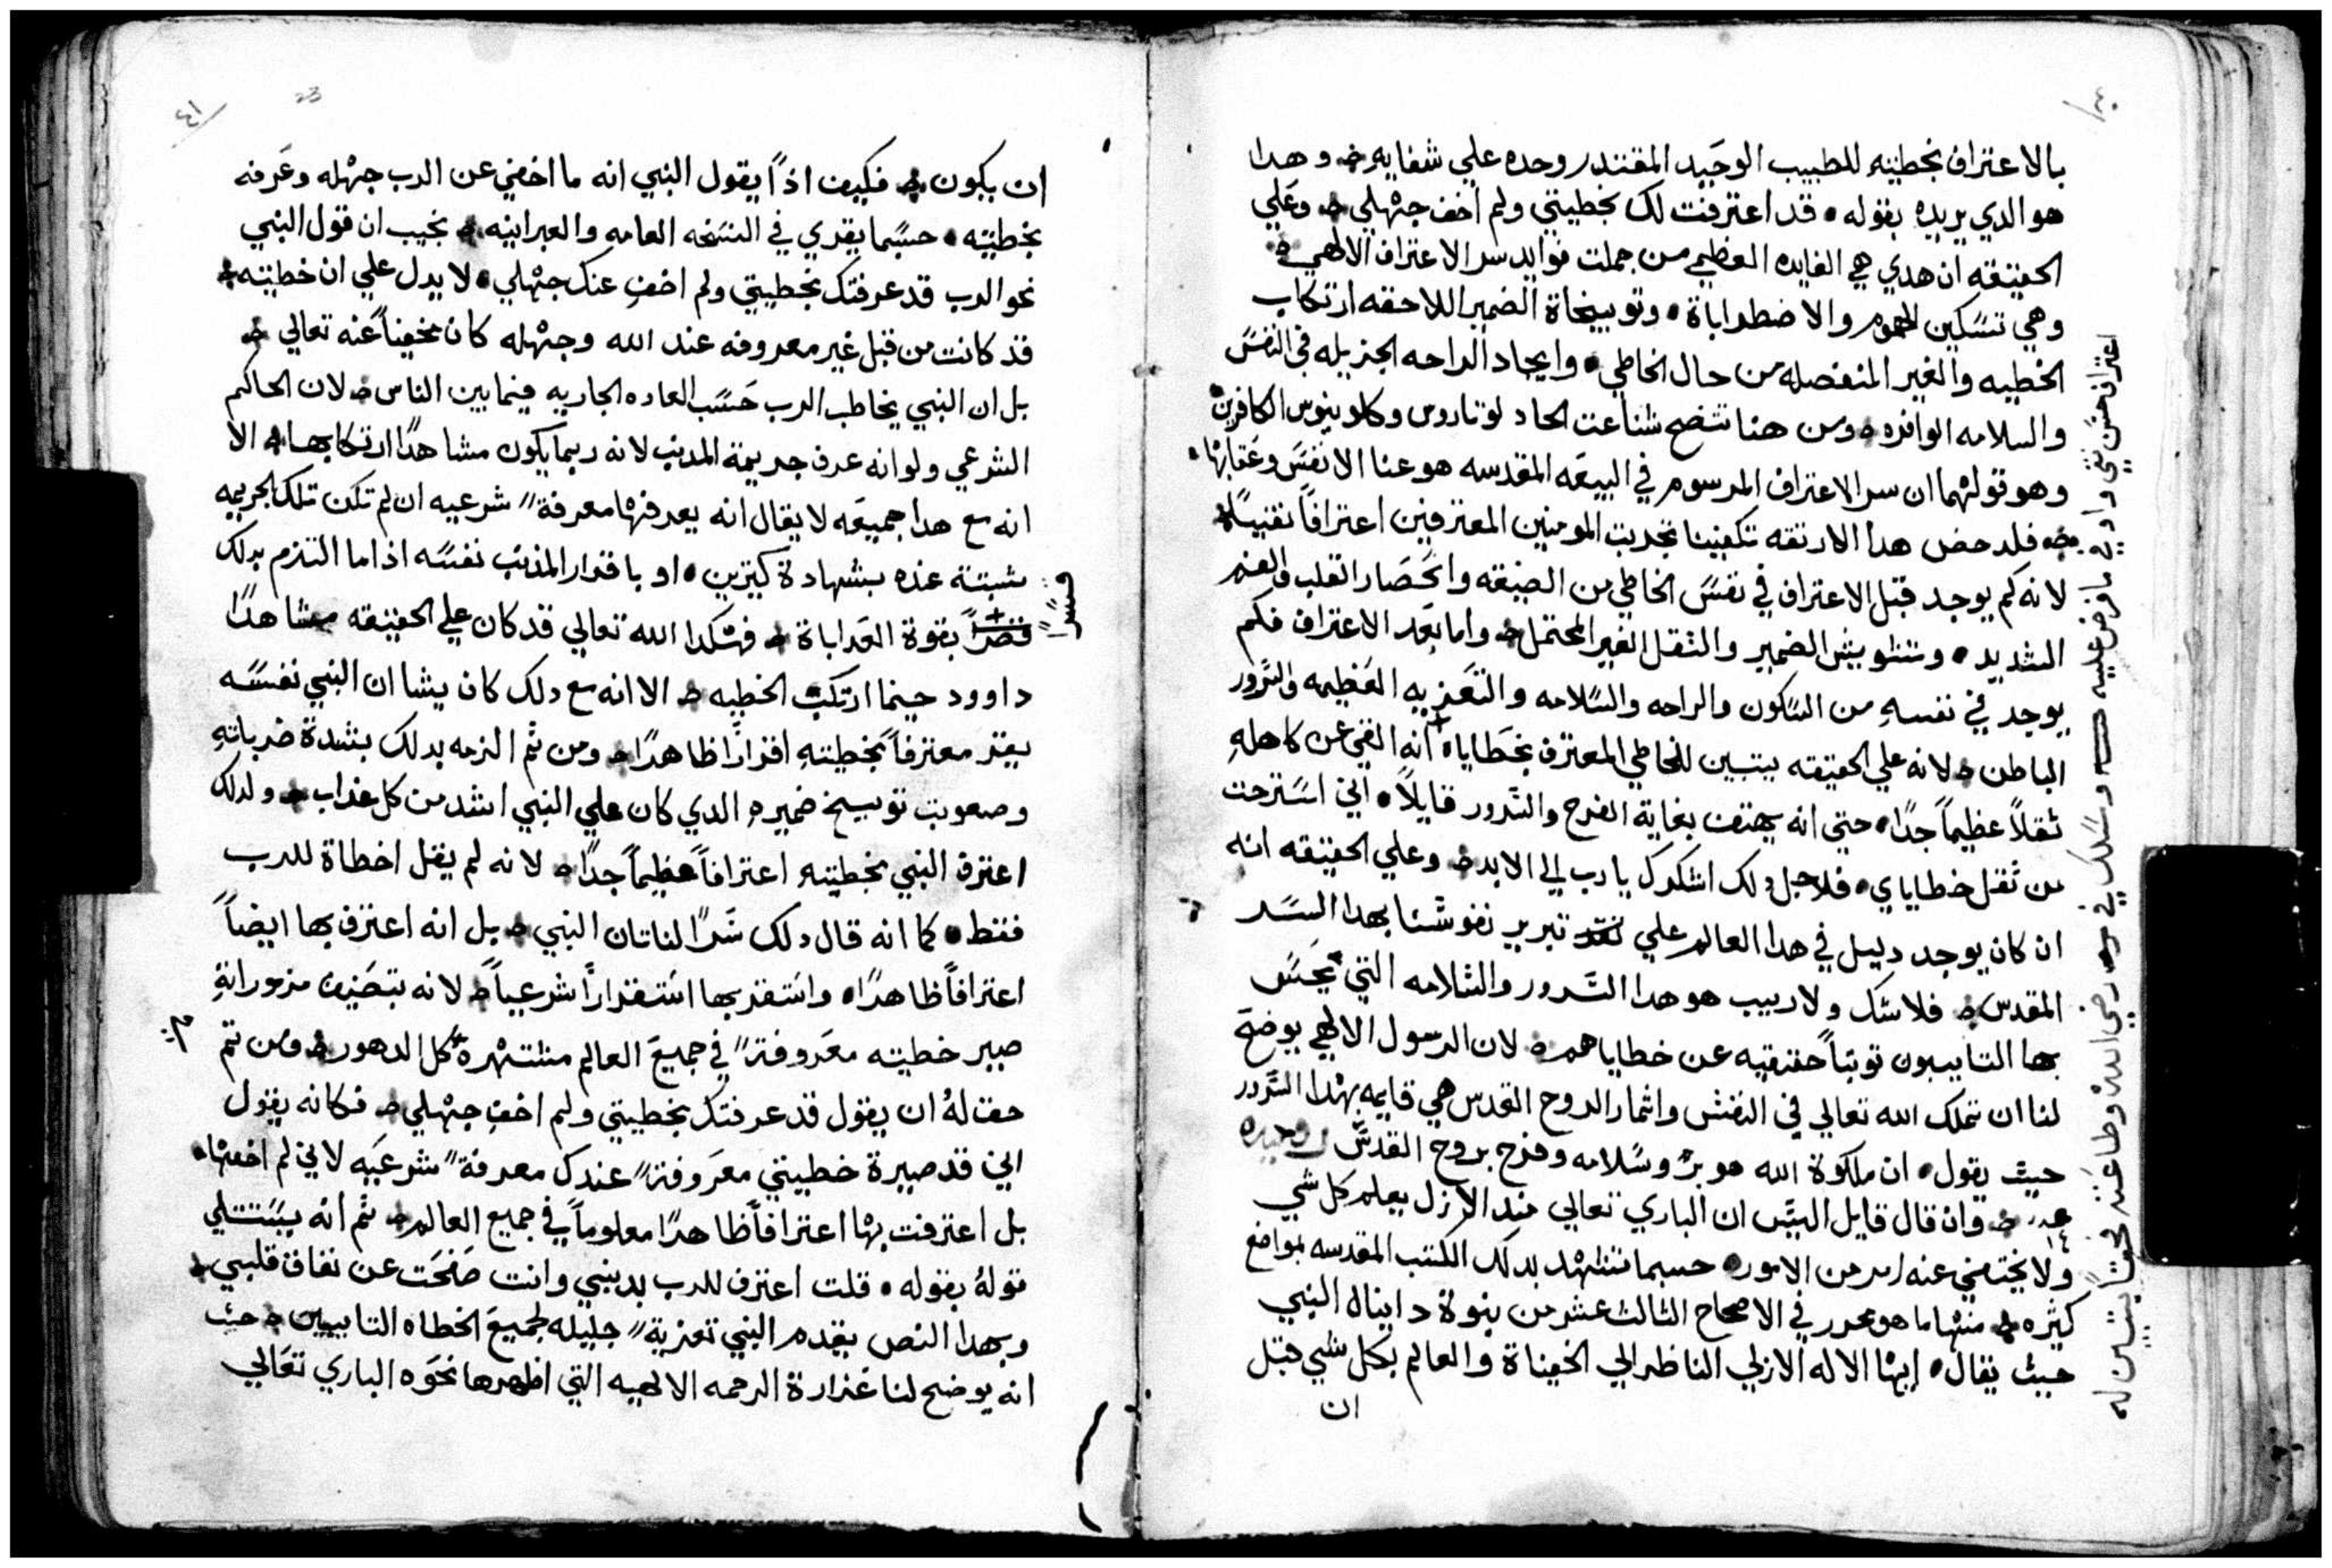 بالاعتراف بخطيته للطبيب الوحيد المقتدر وحده علي شفايه وهدا
هو الدي يريده بقوله قد اعترفت لك بخطيتي ولم أخف جهلي وعلي
الحقيقه ان هدي هي الفايده العظيمي من جملت فوايد سر الاعتراف الالهي
وهي تسكين الهموم والاضطراباة وتوبيخاة الضمير اللاحقه ارتكاب
الخطيه والغير المنفصله من حال الخاطي وايجاد الراحه الجزيله في النفس
والسلامه الوافره ومن هنا تتضح شناعت الحاد لوتاروس وكلوينوس الكافرين
وهو قولهما ان سر الاعتراف المرسوم في البيعه المقدسه هو عنا الانفس وعقابها
فلدحض هدا الارتقه تكفينا تجربت المومنين المعترفين اعترافاً نقيساً
لانه كم يوجد قبل الاعتراف في نفس الخاطي من الضيقه وانحصار القلب والغم
الشديد وتشويش الضمير والثقل الغير المحتمل واما بعد الاعتراف فكم
يوجد في نفسه من السكون والراحه والسلامه والتعزيه العظيمه والسرور
الباطن لانه علي الحقيقه يبتبين للخاطي المعترف بخطاياه انه القي عن كاهله
ثقلاً عظيماً جداً حتي انه يهتف بغاية الفرح والسرور قايلاً اني استرحت
من ثقل خطاياي فلاجل دلك اشكرك يا رب الي الابد وعلي الحقيقه انه
ان كان يوجد دليل في هدا العالم علي تبرير نفوسنا بهدا السر
المقدس فلا شك ولا ريب هو هدا السرور والسلامه التي يحس
بها التايبون توبتاً حقيقيه عن خطاياهم لان الرسول الالهي يوضح
لنا ان تملك الله تعالي في النفس واثمار الروح القدس هي قايمه بهدا السرور
حيث يقول ان ملكوة الله هو بر وسلامه وفرح بروح القدس روميه
عد ١٤ وان قال قايل اليس ان الباري تعالي مند الازل يعلم كل شي
ولا يختفي عنه امر من الامور حسبما تشهد بدلك الكتب المقدسه بمواضع
كثيره منها ما هو محرر في الاصحاح الثالث عشر من بنوة دانيال النبي
حيث يقال ايها الاله الازلي الناظر الي الخفيناة والعالم بكل شي قبل
ان
اعتراف حسن نقي وادي ما فرض عليه وسلك في رضي الله وطاعته
ان يكون فكيف اذاً يقول النبي انه ما اخفي عن الرب جهله وعرفه
بخطيته حسبما يقري في النسخه العامه والعبرانيه نجيب ان قول النبي
نحو الرب قد عرفتك بخطيتي ولم اخفِ عنك جهلي لا يدل علي ان خطيته
قد كانت من قبل غير معروفه عند الله وجهله كان مخفيناً عنه تعالي
بل ان النبي يخاطب الرب حسب العاده الجاريه فيما بين الناس لان الحاكم
الشرعي ولو انه عرف جريمة المدنب لانه ربما يكون مشاهداً ارتكابها الا
انه مع هدا جميعه لا يقال انه يعرفها معرفة شرعيه ان لم تكن تلك الجريمه
مثبتة عنده بشهادة كثيرين او باقرار المذنب نفسه اذا ما التزم بدلك
قسراً
قصراً بقوة العداباة فهكدا الله تعالي قد كان علي الحقيقه مشاهداً
داوود حينما ارتكب الخطيه الا انه مع دلك كان يشا ان النبي نفسه
يقر معترفاً بخطيته اقراراً ظاهراً ومن ثم الزمه بدلك بشدة ضرباته
وصعوبت توبيخ ضميره الدي كان علي النبي اشد من كل عذاب ولدلك
اعترف النبي بخطيته اعترافاً عظيماً جداً لانه لم يقل اخطاة للرب
فقط كما انه قال دلك سراً لناتان النبي بل انه اعترف بها ايضاً
اعترافاً ظاهراً واستقر بها استقراراً شرعياً لانه بتصنيف مزموراته
صير خطيته معروفة في جميع العالم مشتهرة كل الدهور ومن ثم
حق لهُ ان يقول قد عرفتك بخطيتي ولم اخفِ جهلي فكانه يقول
اني قد صيرة خطيتي معروفة عندك معرفة شرعيه لاني لم اخفها
بل اعترفت بها اعترافاً ظاهراً معلوماً في جميع العالم ثم انه يستتلي
قولهُ بقوله قلت اعترف للرب بدنبي وانت صفحت عن نفاق قلبي
وبهدا النص يقدم النبي تعزية جليله لجميع الخطاه التايبين حيث
انه يوضح لنا غزارة الرحمه الالهيه التي اظهرها نحوه الباري تعالي
٤١
23